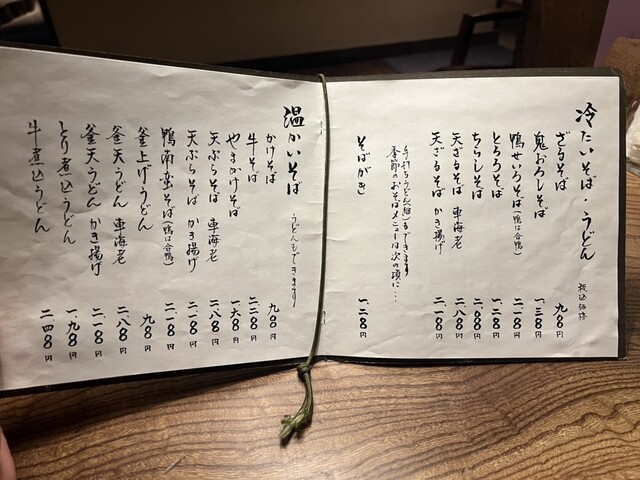 冷たいそば・うどん
税込価格
ざるそば 九〇〇円
鬼おろしそば 一、三〇〇円
鴨せいろそば(鴨は合鴨) 二、一〇〇円
とろろそば 一、二〇〇円
ちらしそば 二、〇〇〇円
天ざるそば 車海老 二、八〇〇円
天ざるそば かき揚げ 二、一〇〇円
手打ちうどん(細)もできます
季節のおそばメニューは次の項に…
そばがき 一、二〇〇円
温かいそば
うどんもできます
かけそば 九〇〇円
牛そば 二、二〇〇円
やまかけそば 一、六〇〇円
天ぷらそば 車海老 二、八〇〇円
天ぷらそば かき揚げ 二、一〇〇円
鴨南蛮そば(鴨は合鴨) 二、一〇〇円
釜上げうどん 九〇〇円
釜天うどん 車海老 二、八〇〇円
釜天うどん かき揚げ 二、一〇〇円
とり煮込うどん 一、九〇〇円
牛煮込うどん 二、四〇〇円